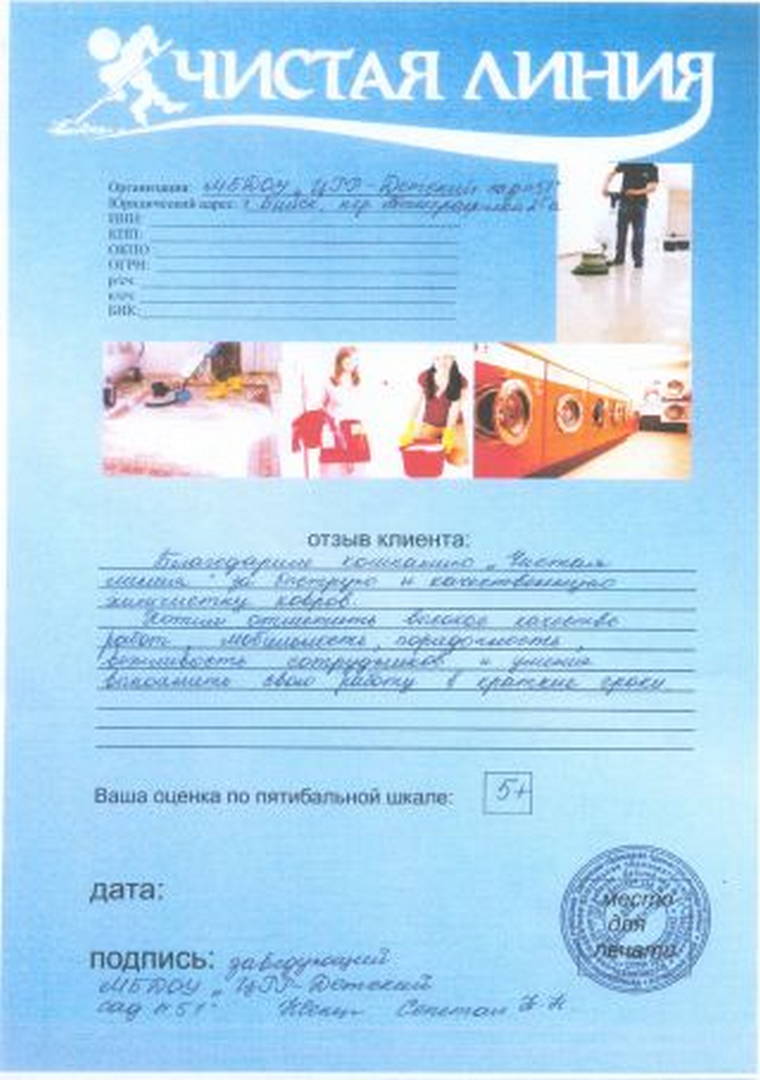 ЧИСТАЯ ЛИНИЯ
Организация: МБДОУ „ЦРР - Детский сад №51"
Юридический адрес: г. Бийск, пер.
ИНН:
КПП:
ОКПО
ОГРН:
р/сч:
к/сч:
БИК:
отзыв клиента:
Благодарим компанию „Чистая
линия" за быструю и качественную
химчистку ковров.
Хотим отметить высокое качество
работ, мобильность, порядочность,
вежливость сотрудников и умение
выполнить свою работу в краткие сроки
Ваша оценка по пятибальной шкале: 5+
дата:
место
для
печати
подпись: заведующий
МБДОУ „ЦРР - Детский
сад №51"